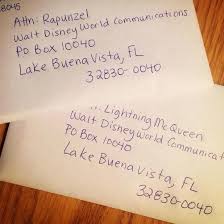 8045
Attn: Rapunzel
Walt Disney World Communications
PO Box 10040
Lake Buena Vista, FL
32830-0040
: Lightning McQueen
Walt Disney World Communicat
PO Box 10040
Lake Buena Vista, FL
32830-0040